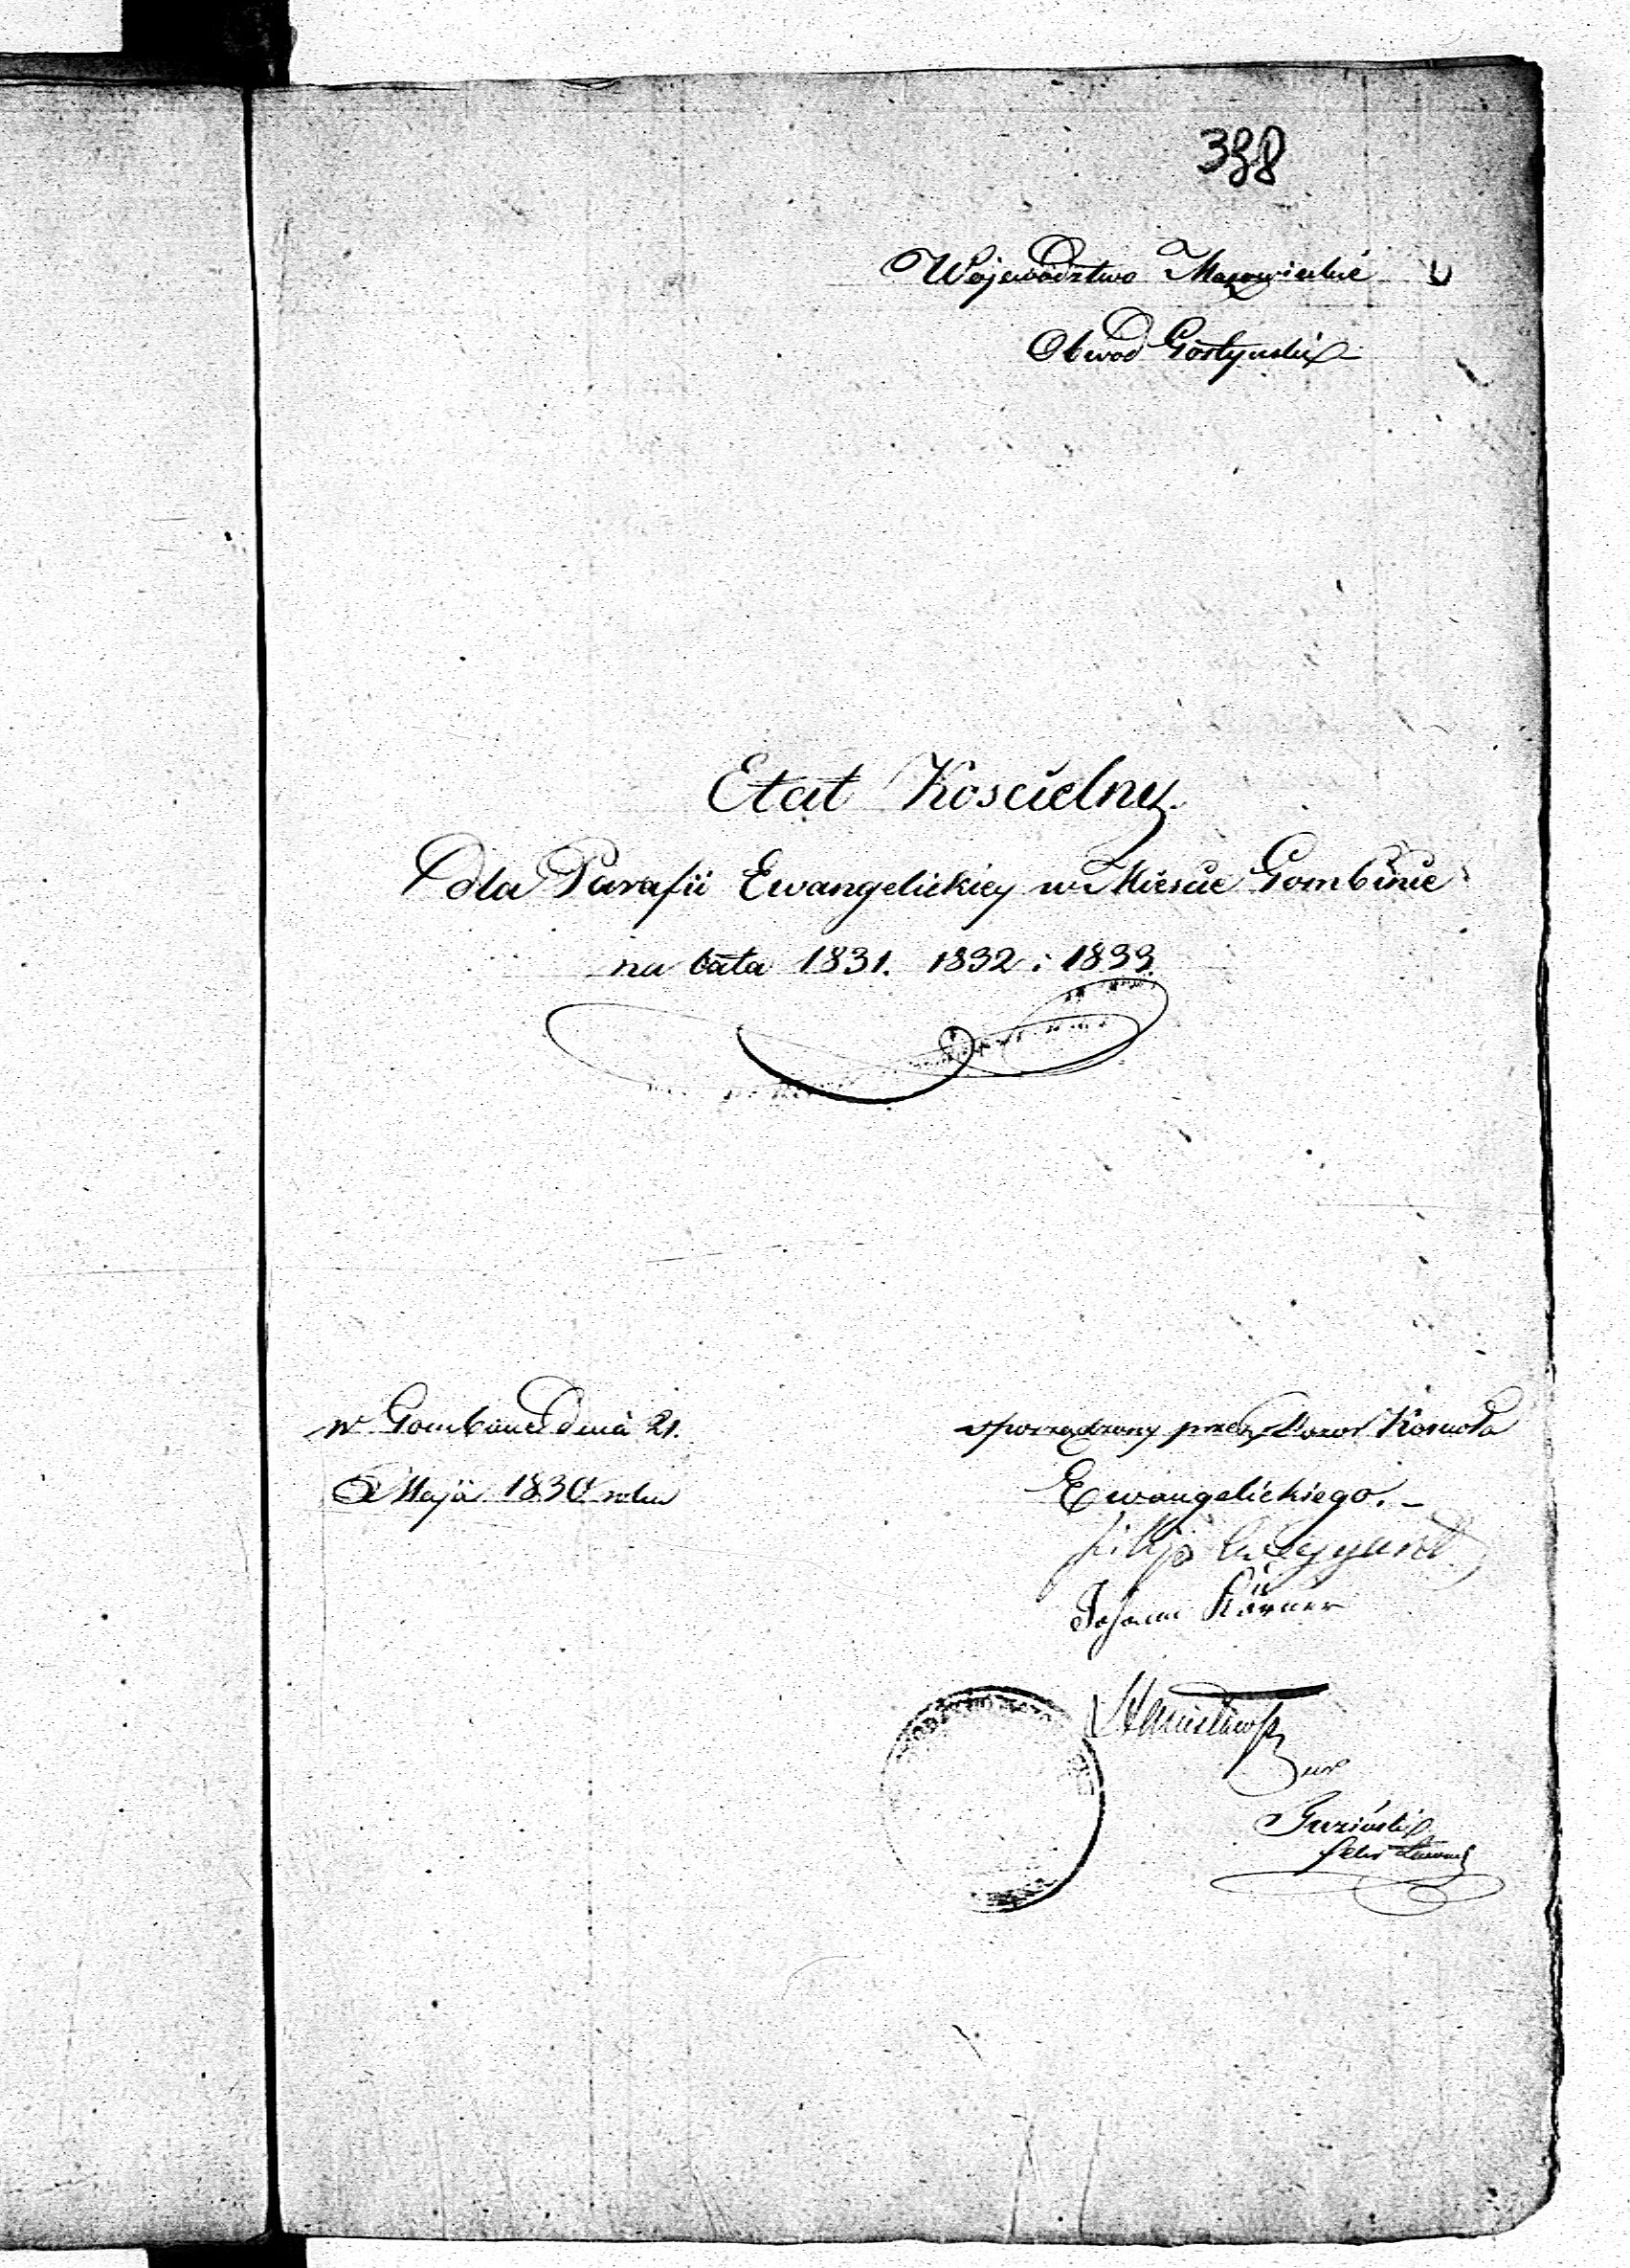 398
Województwo Mazowieckie
Obwod Gostynski
Etat Koscielny
dla Parafii Ewangelickiey w Miescie Gombinie
na lata 1831. 1832 i 1833.
w Gombinie dnia 21.
Maja 1830 roku
sporządzony przez Dozor Koscioła
Ewangelickiego.
Johann Körner